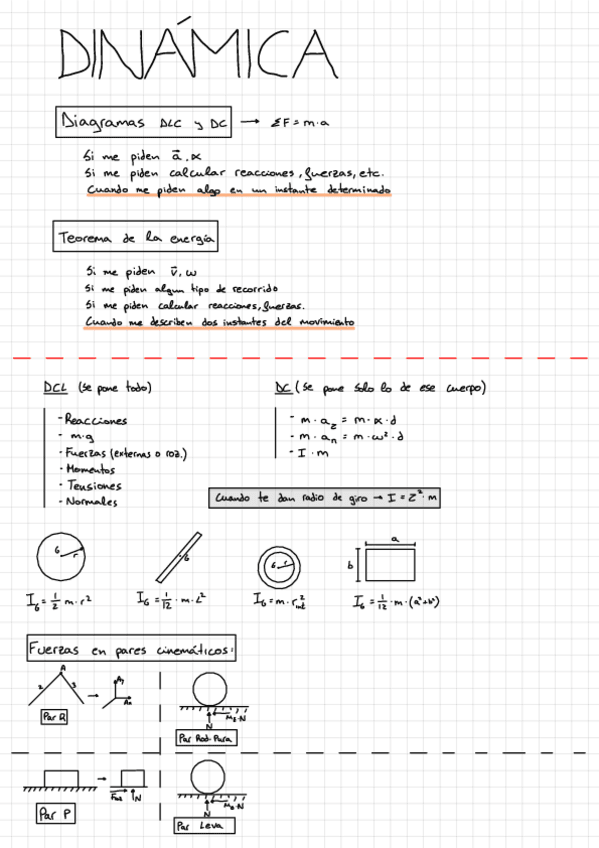 DINÁMICA
Diagramas DLC y DC → ΣF = m·a
Si me piden a⃗, α
Si me piden calcular reacciones, fuerzas, etc.
Cuando me piden algo en un instante determinado
Teorema de la energía
Si me piden v⃗, ω
Si me piden algun tipo de recorrido
Si me piden calcular reacciones, fuerzas.
Cuando me describen dos instantes del movimiento
DCL (se pone todo)
- Reacciones
- m·g
- Fuerzas (externas o roz.)
- Momentos
- Tensiones
- Normales
DC (se pone solo lo de ese cuerpo)
- m·a_z = m·α·d
- m·a_n = m·ω²·d
- I·m
Cuando te dan radio de giro → I = Z²·m
G r
G
G r
a
b
I_G = 1/2 m·r²
I_G = 1/12 · m·L²
I_G = m·r²_int
I_G = 1/12 · m·(a²+b²)
Fuerzas en pares cinemáticos:
A
2 3
A_y
A_x
Par R
N
Par Rod. Pura
F_roz
N
Par P
N
Par Leva